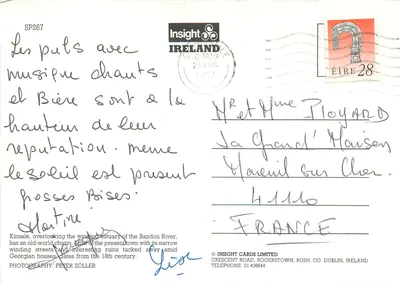 SP267
Les pubs avec
musique chants
et Bière sont à la
hauteur de leur
reputation. meme
le soleil est present
grosses Bises.
Martine
Kinsale, overlooking the winding estuary of the Bandon River,
has an old-world charm. Part of the present town with its narrow
winding streets and interesting ruins tucked away amid
Georgian houses dates from the 18th century.
PHOTOGRAPHY: PETER ZOLLER
Lise
Insight
IRELAND
ÉIRE 28
Mr et Mme Ployard
La Grand' Maison
Mareuil sur Cher
41110
FRANCE
© INSIGHT CARDS LIMITED
CRESCENT ROAD, ROGERSTOWN, RUSH, CO. DUBLIN, IRELAND
TELEPHONE 01-438844